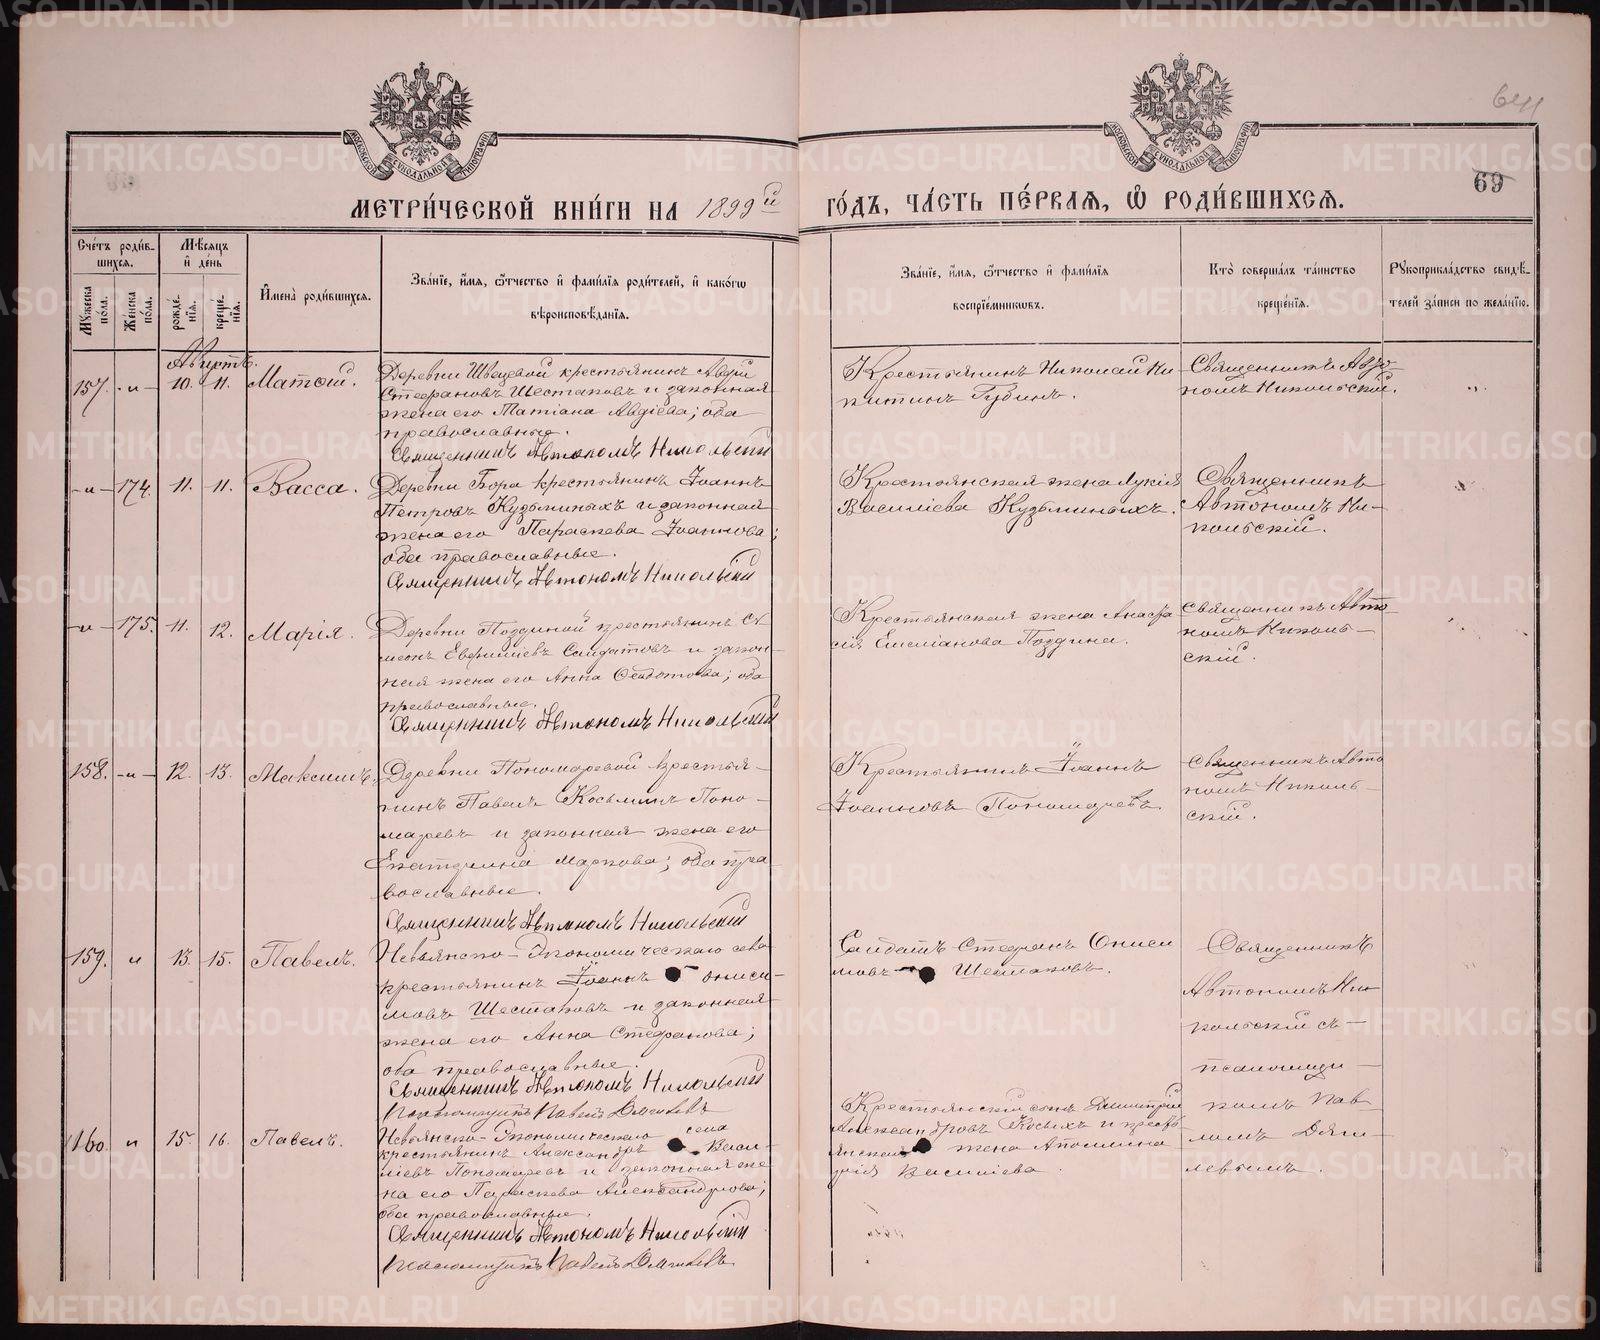 METRIKI.GASO-URAL.RU
641
69
МОСКОВСКОЙ СѴНОДАЛЬНОЙ ТИПОГРАФІИ
МОСКОВСКОЙ СѴНОДАЛЬНОЙ ТИПОГРАФІИ
МЕТРИ́ЧЕСКОЙ КНИ́ГИ НА 1899й ГО́ДЪ, ЧА́СТЬ ПЕ́РВАЯ, Ѡ РОДИ́ВШИХСЯ.
Сче́тъ роди́в-
шихся.
Му́жеска
по́ла.
Же́нска
по́ла.
Мѣ́сяцъ
и де́нь
рожде́-
нія.
креще́-
нія.
Имена̀ роди́вшихся.
Зва́ніе, и́мя, ѻ҆́тчество и фами́лія роди́телей, и како́гѡ
вѣроисповѣ́данія.
Зва́ніе, и́мя, ѻ҆́тчество и фами́лія
воспріе́мниковъ.
Кто̀ соверша́лъ та́инство
креще́нія.
Рукоприкла́дство свидѣ́-
телей за́писи по жела́нію.
Августъ.
157. -и- 10. 11.
Деревни Швецовой крестьянинъ
Стефановъ Шестаковъ и законная
жена его Татіана Авдіева; оба
православные.
Священникъ Автономъ Никольскій
Крестьянинъ Николай Ни-
китинъ Губинъ.
Священникъ Авто-
номъ Никольскій.
-и- 174. 11. 11. Васса.
Деревни Бора крестьянинъ Іоаннъ
Петровъ Кузьминыхъ и законная
жена его Параскева Іоаннова;
оба православные.
Священникъ Автономъ Никольскій
Крестьянская жена Лукія
Василіева Кузьминыхъ.
Священникъ
Автономъ Ни-
кольскій.
-и- 175. 11. 12. Марія.
Деревни Поздиной крестьянинъ Сѵ-
меонъ Евфиміевъ Солдатовъ и закон-
ная жена его Анна Ѳеодотова; оба
православные.
Священникъ Автономъ Никольскій
Крестьянская жена Анаста-
сія Емеліанова Поздина.
Священникъ Авто
номъ Николь-
скій.
158. -и- 12. 13. Максимъ.
Деревни Пономаревой крестья-
нинъ Павелъ Косьминъ Поно-
маревъ и законная жена его
Екатерина Маркова; оба пра-
вославные.
Священникъ Автономъ Никольскій
Крестьянинъ Іоаннъ
Іоанновъ Пономаревъ.
Священникъ Авто
номъ Николь-
скій.
159. и 13. 15. Павелъ.
Невьянско-Экономическаго села
крестьянинъ Іоаннъ Ониси-
мовъ Шестаковъ и законная
жена его Анна Стефанова;
оба православные.
Священникъ Автономъ Никольскій
Псаломщикъ Павелъ
Солдатъ Стефанъ Ониси
мовъ Шестаковъ.
Священникъ
Автономъ Ни-
кольскій съ
псаломщи-
комъ Пав-
ломъ
160. и 15. 16. Павелъ.
Невьянско-Экономическаго села
крестьянинъ Александръ Васи-
ліевъ Пономаревъ и законная же
на его Параскева Александрова;
оба православные.
Священникъ Автономъ Никольскій
Псаломщикъ Павелъ
Крестьянскій сынъ Димитрій
Александровъ Косыхъ и кресть
янская жена
Василіева.